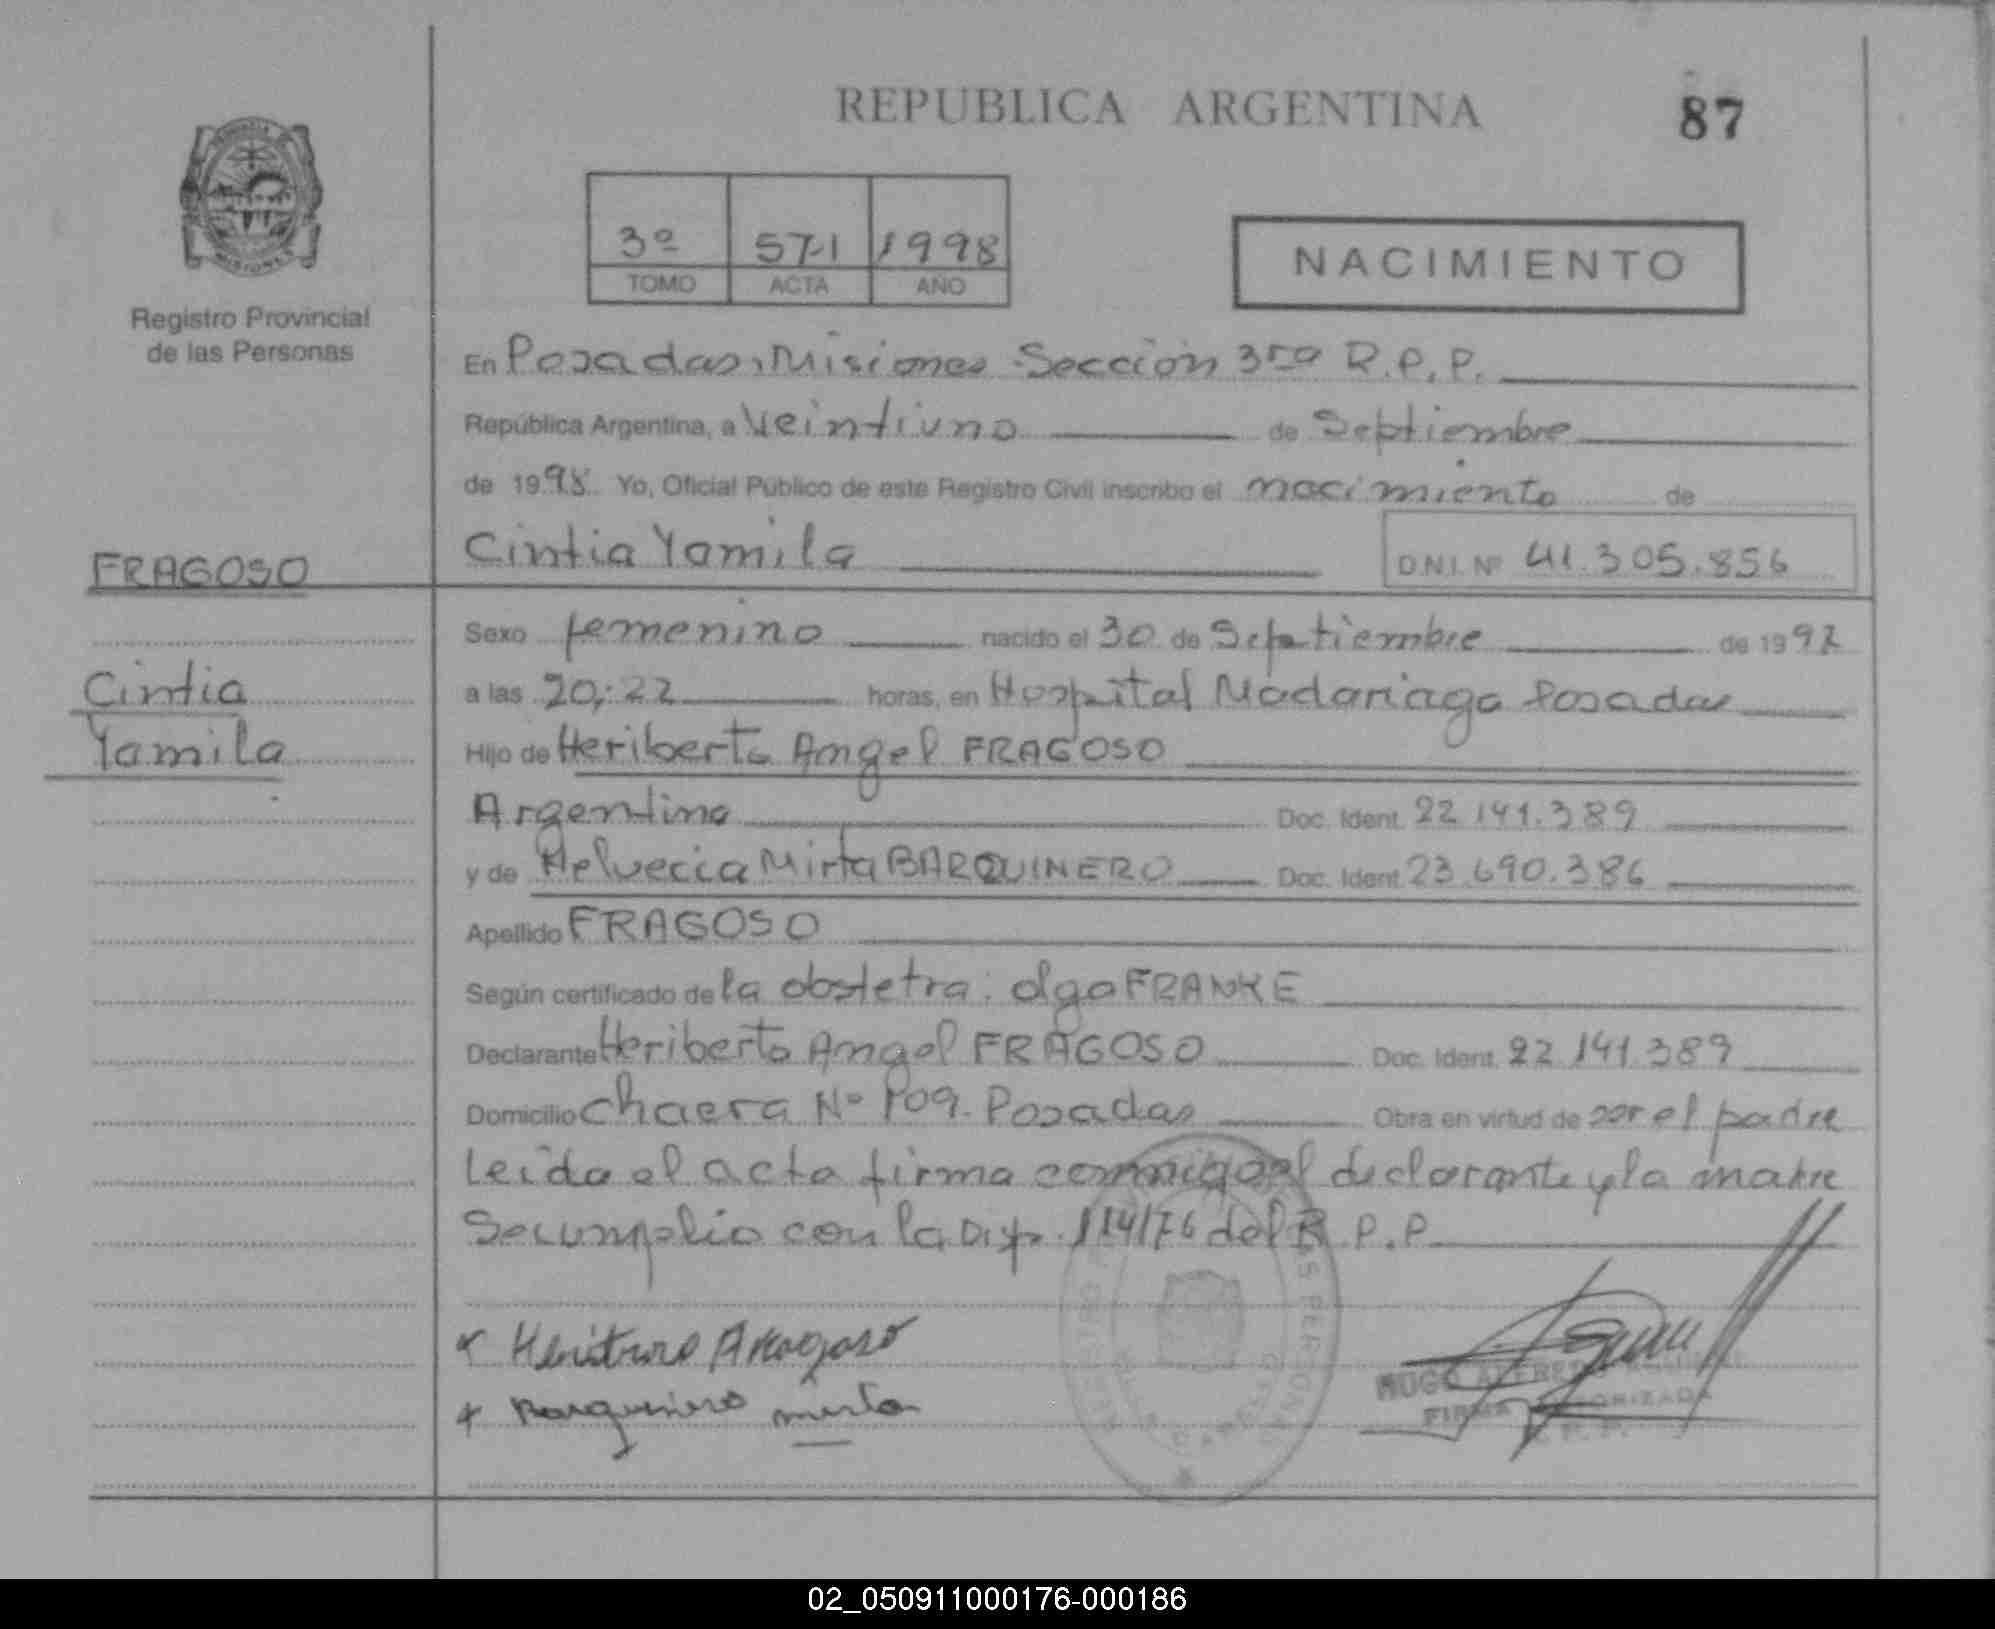 REPUBLICA ARGENTINA
87
3º 571 1998
TOMO ACTA AÑO
NACIMIENTO
MISIONES
Registro Provincial
de las Personas
En Posadas, Misiones Sección 3ra R.P.P.
República Argentina, a Veintiuno de Septiembre
de 1998 Yo, Oficial Público de este Registro Civil inscribo el nacimiento de
Cintia Yamila
D.N.I. Nº 41.305.856
FRAGOSO
Cintia
Yamila
Sexo femenino nacido el 30 de Septiembre de 1997
a las 20,:22 horas, en Hospital Madariaga Posadas
Hijo de Heriberto Angel FRAGOSO
Argentino Doc. Ident. 22.141.389
y de Helvecia Mirta BARQUINERO Doc. Ident. 23.690.386
Apellido FRAGOSO
Según certificado de la obstetra: Olga FRANKE
Declarante Heriberto Angel FRAGOSO Doc. Ident. 22.141.389
Domicilio Chacra Nº 109. Posadas Obra en virtud de ser el padre
Leida el acta firma conmigo el declarante y la madre
Se cumplio con la Disp. 114/76 del R.P.P.
Barquinero mirta
HUGO ALFREDO
FIRMA AUTORIZADA
R.P.P.
02_050911000176-000186